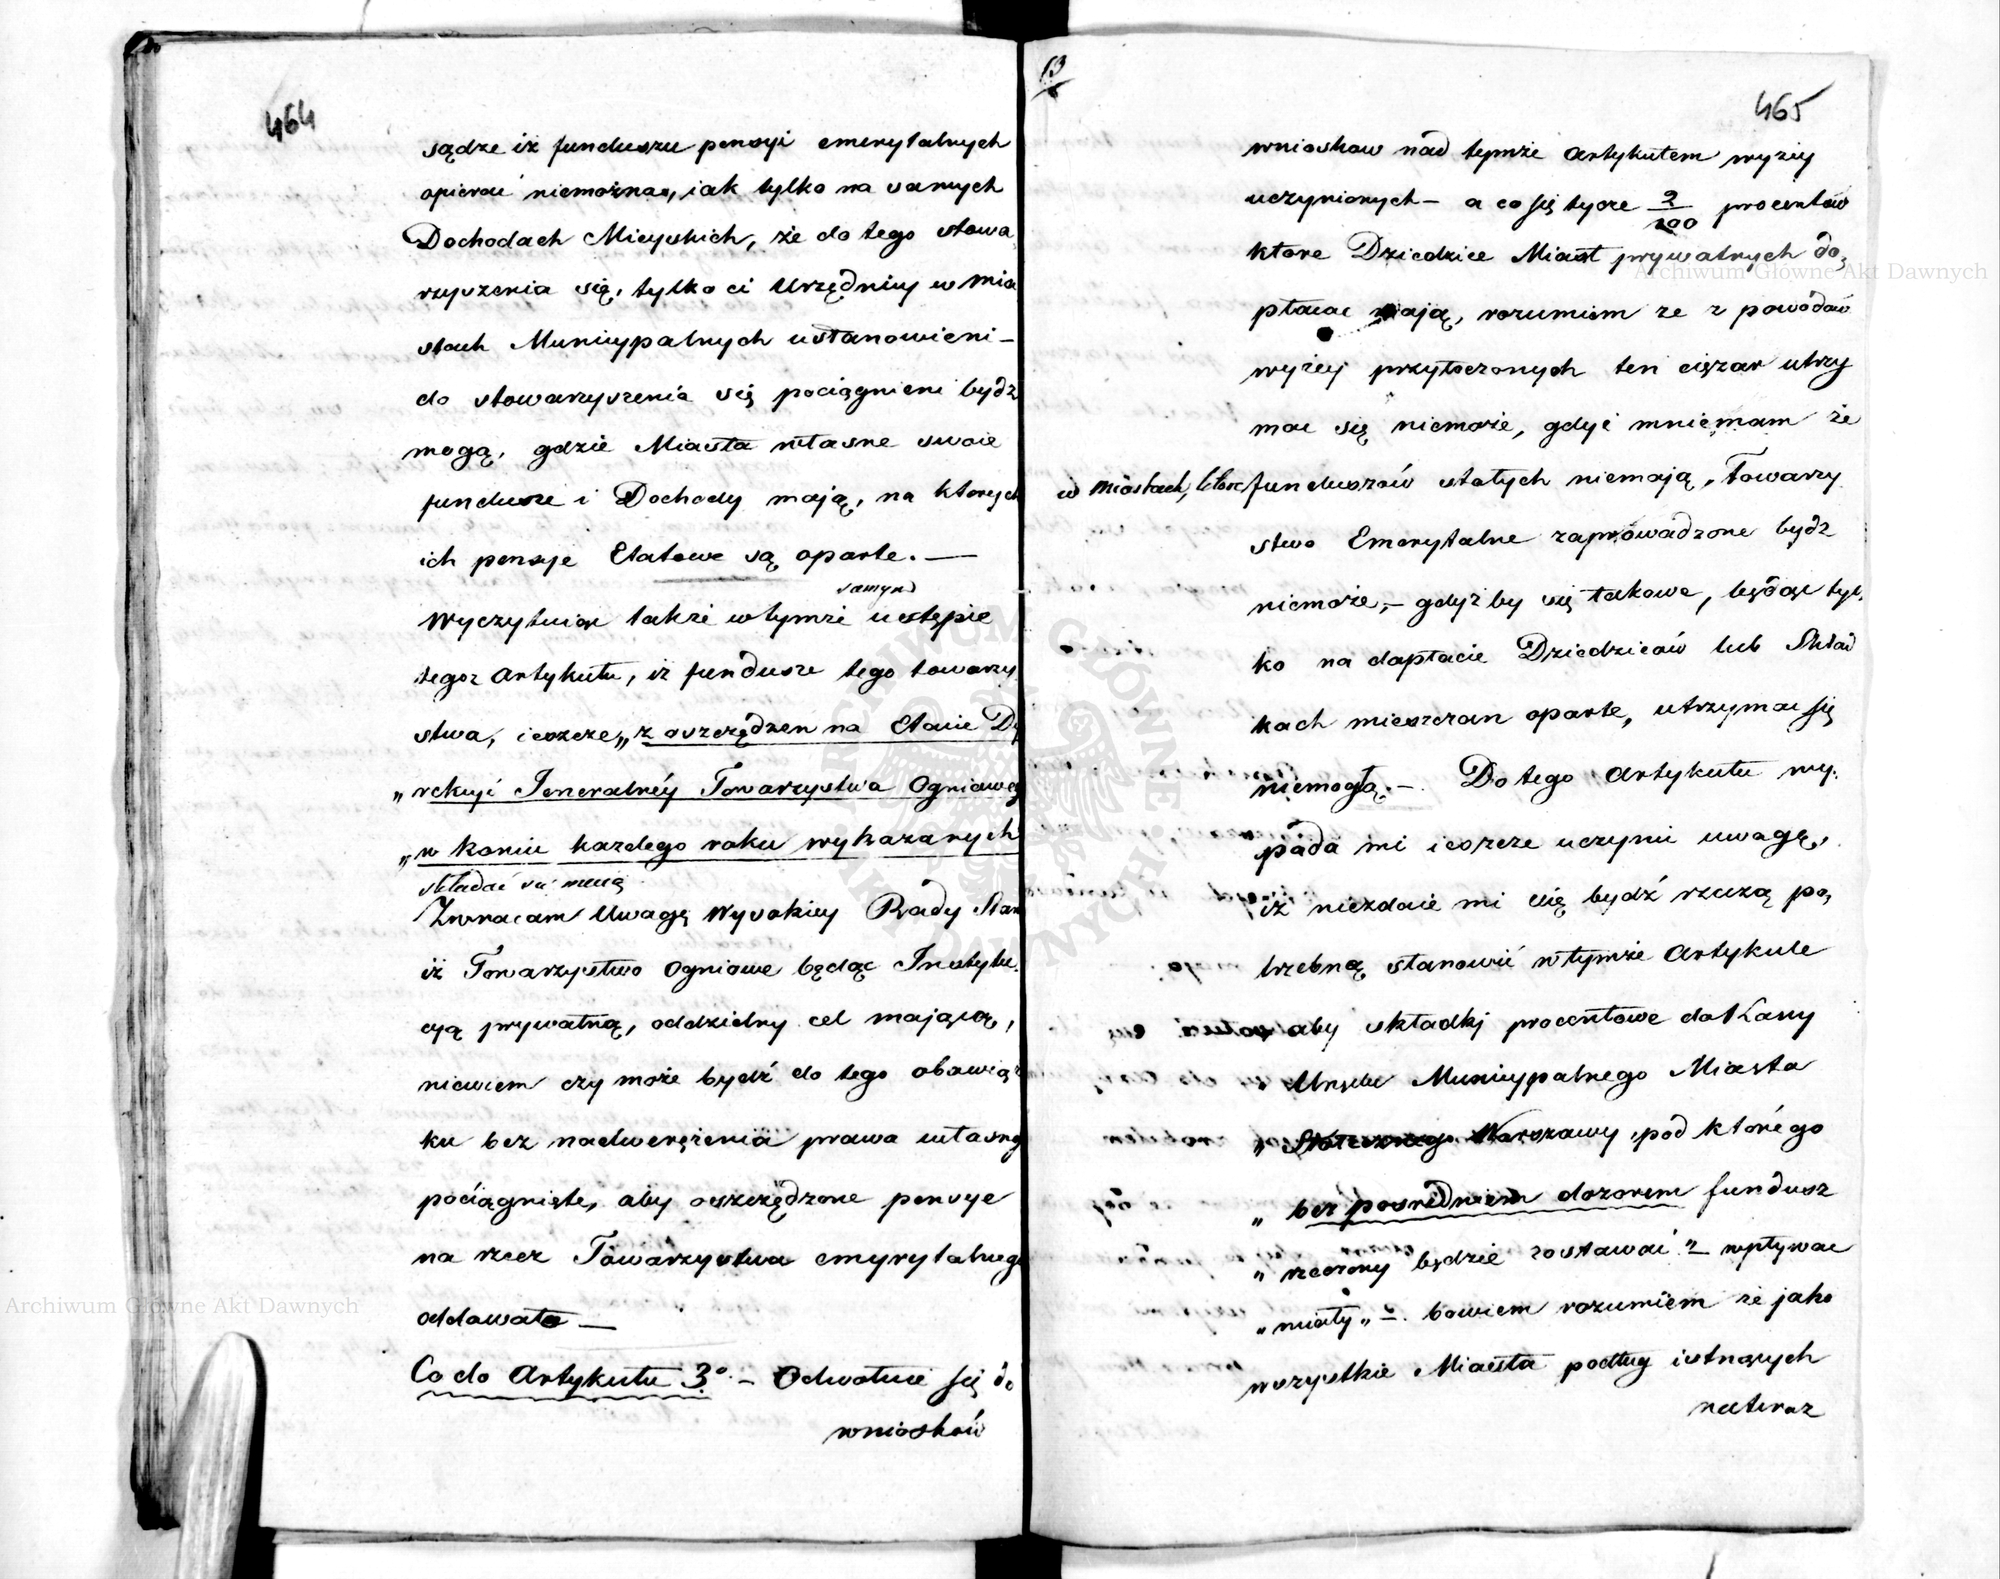 464
sądze iż funduszu pensyi emerytalnych
opierać niemożna, iak tylko na samych
Dochodach Mieyskich, że do tego stowa
rzyszenia się, tylko ci Urzędnicy w Mia
stach Municypalnych ustanowieni –
do stowarzyszenia się pociągnieni bydź
mogą, gdzie Miasta własne swoie
fundusze i Dochody mają, na ktorych
ich pensye Etatowe są oparte. —
samym
Wyczytuiąc także w tymże ustępie
tegoz Artykułu, iż fundusze tego towarzy
stwa, ieszcze „z oszczędzen na Etacie Dy
„rekcyi Jeneralnéy Towarzystwa Ogniowego
„w koncu kazdego roku wykazanych
składać się maią
Zwracam Uwagę Wysokiey Rady Stanu
iż Towarzystwo Ogniowe będąc Instytu
cyą prywatną, oddzielny cel mającą,
niewiem czy może bydź do tego obowiąz
ku bez nadwerężenia prawa własnego
pociągnięte, aby oszczędzone pensye
na rzecz Towarzystwa emyrytalnego
oddawało —
Co do Artykułu 3° – Odwołuie się do
wniosków
13
465
wnioskow nad tymże Artykułem wyzey
uczynionych – a co się tycze 2/100 procentów
ktore Dziedzice Miast prywatnych do
płacac mają, rozumiem ze z powodów
wyżey przytoczonych ten ciężar utrzy
mac się niemoże, gdyż mniemam że
w miastach, ktore funduszów stałych niemają, Towarzy
stwo Emerytalne zaprowadzone bydz
niemoże, – gdyż by się takowe, będąc tyl
ko na dopłacie Dziedziców lub Skład
kach mieszczan oparte, utrzymac się
niemogło. – Do tego Artykułu wy
pada mi ieszcze uczynic uwagę,
iż niezdaie mi się bydź rzeczą po
trzebną stanowić w tymże Artykule
aby składki procentowe do Kassy
„Urzędu Municypalnego Miasta
„Stołecznego Warszawy, pod którego
„bezpośredniem dozorem fundusz
„rzeczony będzie zostawać" – wpływac
„miały" – bowiem rozumiem że jako
wszystkie Miasta podług istnących
nateraz
Archiwum Główne Akt Dawnych
Archiwum Główne Akt Dawnych
ARCHIWUM GŁÓWNE AKT DAWNYCH